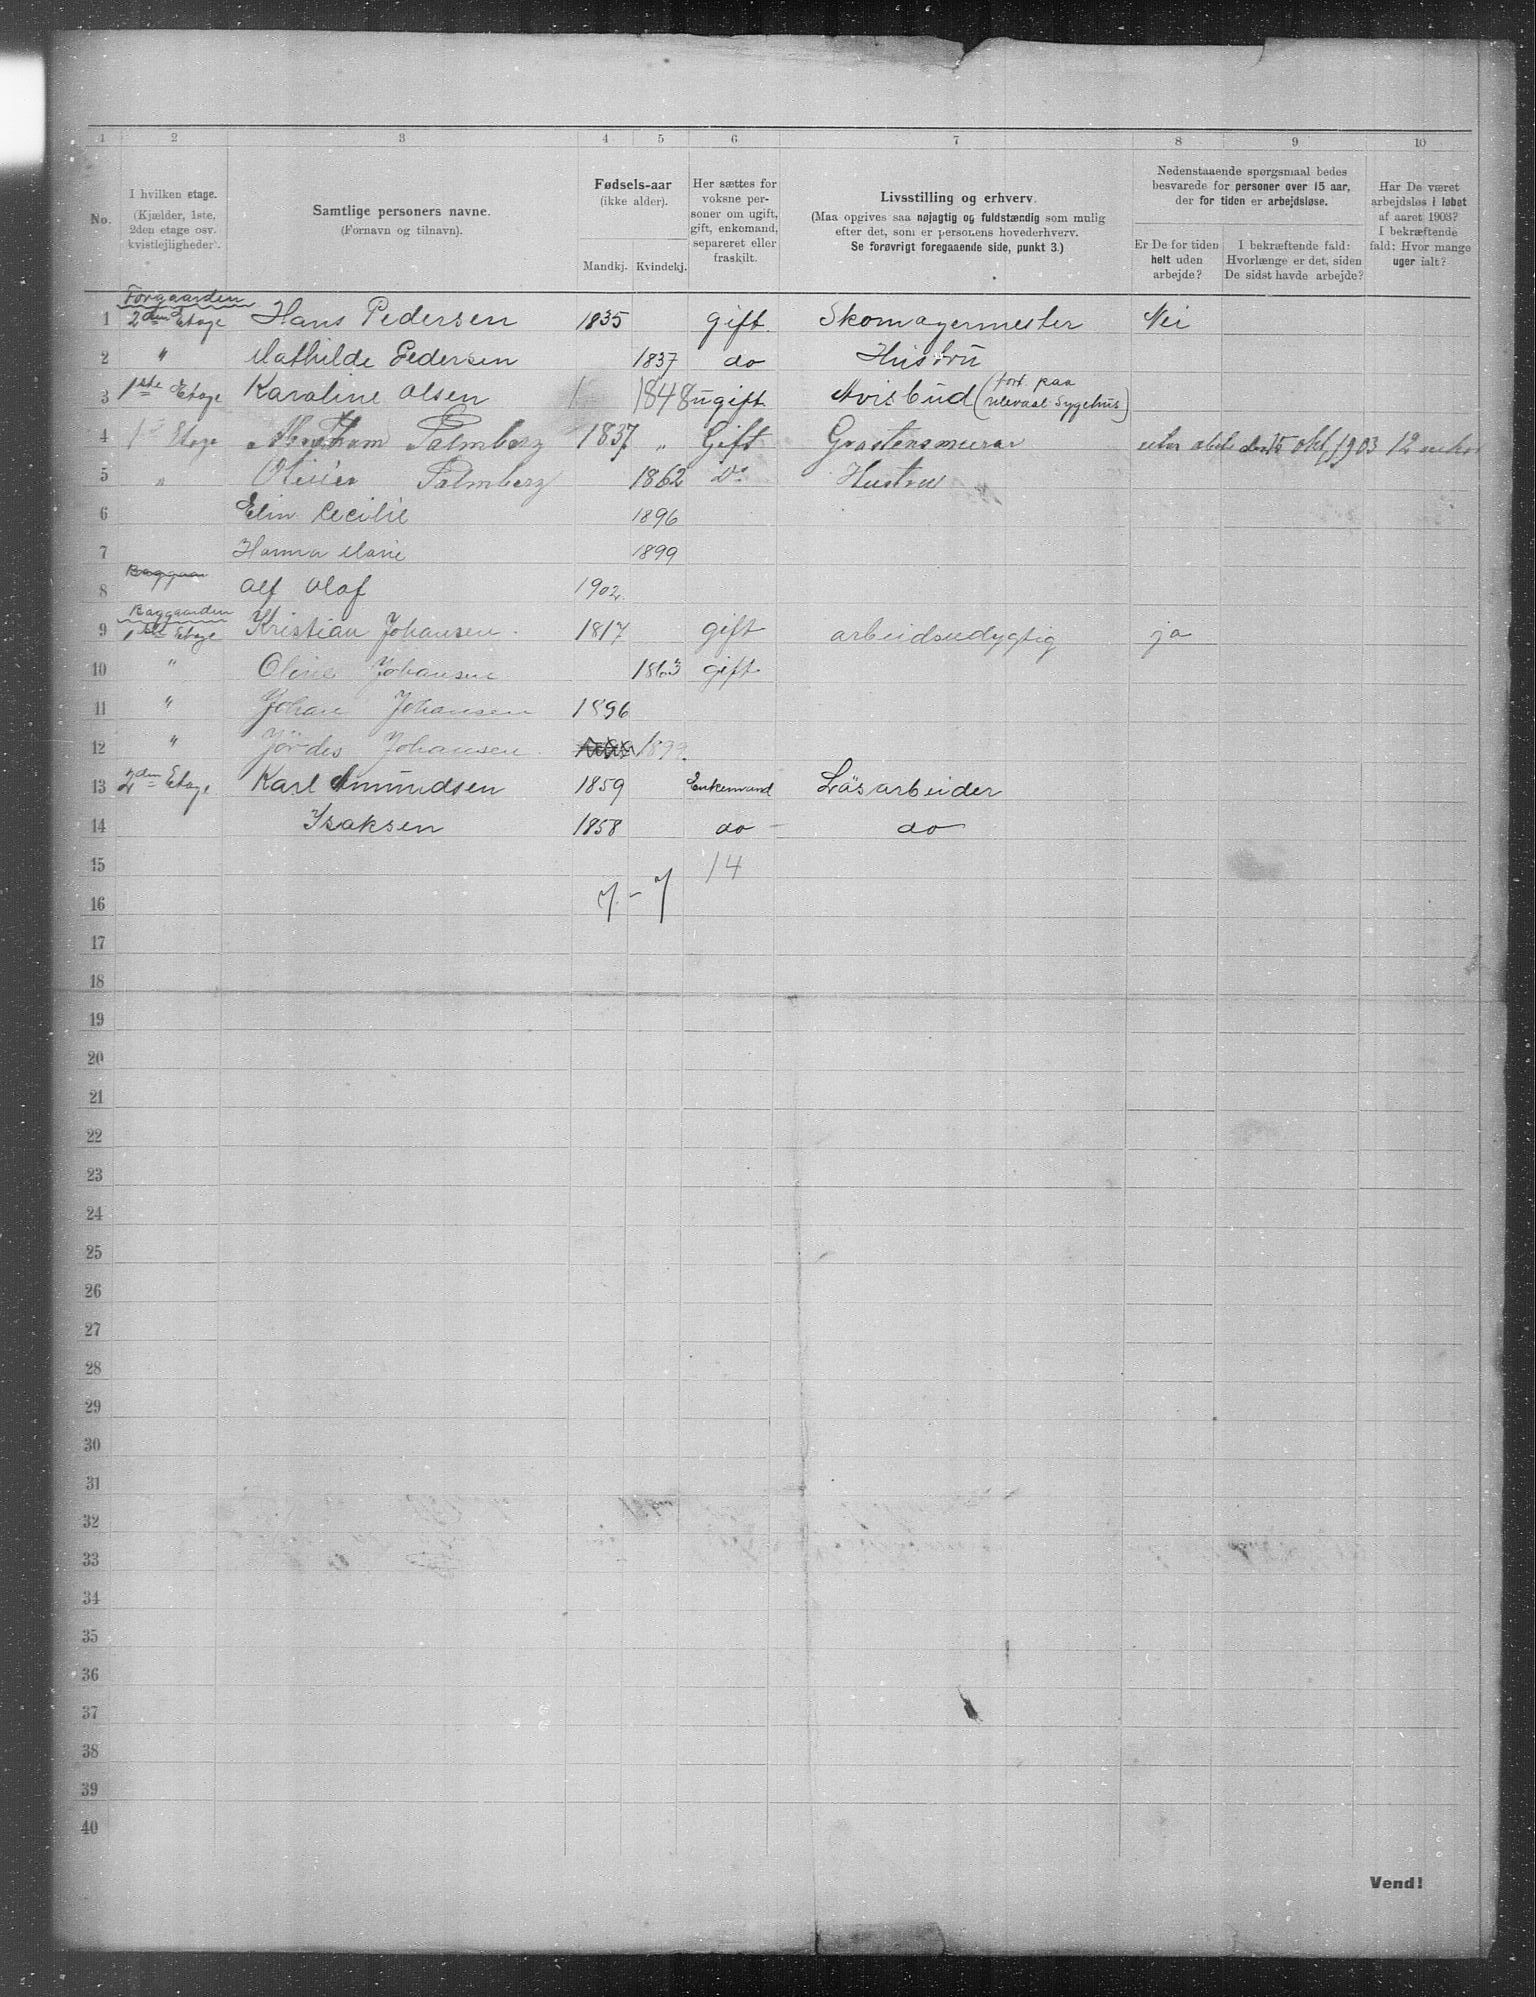 1 2 3 4 5 6 7 8 9 10
No.
I hvilken etage.
(Kjælder, 1ste,
2den etage osv.
kvistlejligheder).
Samtlige personers navne.
(Fornavn og tilnavn).
Fødsels-aar
(ikke alder).
Mandkj. Kvindekj.
Her sættes for
voksne per-
soner om ugift,
gift, enkemand,
separeret eller
fraskilt.
Livsstilling og erhverv.
(Maa opgives saa nøjagtig og fuldstændig som mulig
efter det, som er personens hovederhverv.
Se forøvrigt foregaaende side, punkt 3.)
Nedenstaaende spørgsmaal bedes
besvarede for personer over 15 aar,
der for tiden er arbejdsløse.
Er De for tiden
helt uden
arbejde?
I bekræftende fald:
Hvorlænge er det, siden
De sidst havde arbejde?
Har De været
arbejdsløs i løbet
af aaret 1903?
I bekræftende
fald: Hvor mange
uger ialt?
Forgaarden
1 2den Etage Hans Pedersen 1835 gift Skomagermester Nei
2 " Mathilde Pedersen 1837 do Hustru
3 1ste Etage Karoline Olsen 1848 ugift Avisbud (fort. paa Ulevaal Sygehus)
4 1 Etage Abraham Palmberg 1837 " Gift 15 okt 1903 12
5 " Palmberg 1862 Do Hustru
6 Elin Cecilie 1896
7 Hanna Marie 1899
8 Alf Olaf 1902.
Baggaarden
9 1ste Etage Kristian Johansen. 1817 gift arbeidsudygtig ja
10 " Oline Johansen 1863 gift
11 " Johan Johansen 1896
12 " Jørdis Johansen 1899.
13 2den Etage Karl Amundsen 1859 Enkemand Løsarbeider
14 Isaksen 1858 do do
15 14
16 7 - 7
17
18
19
20
21
22
23
24
25
26
27
28
29
30
31
32
33
34
35
36
37
38
39
40
Vend!